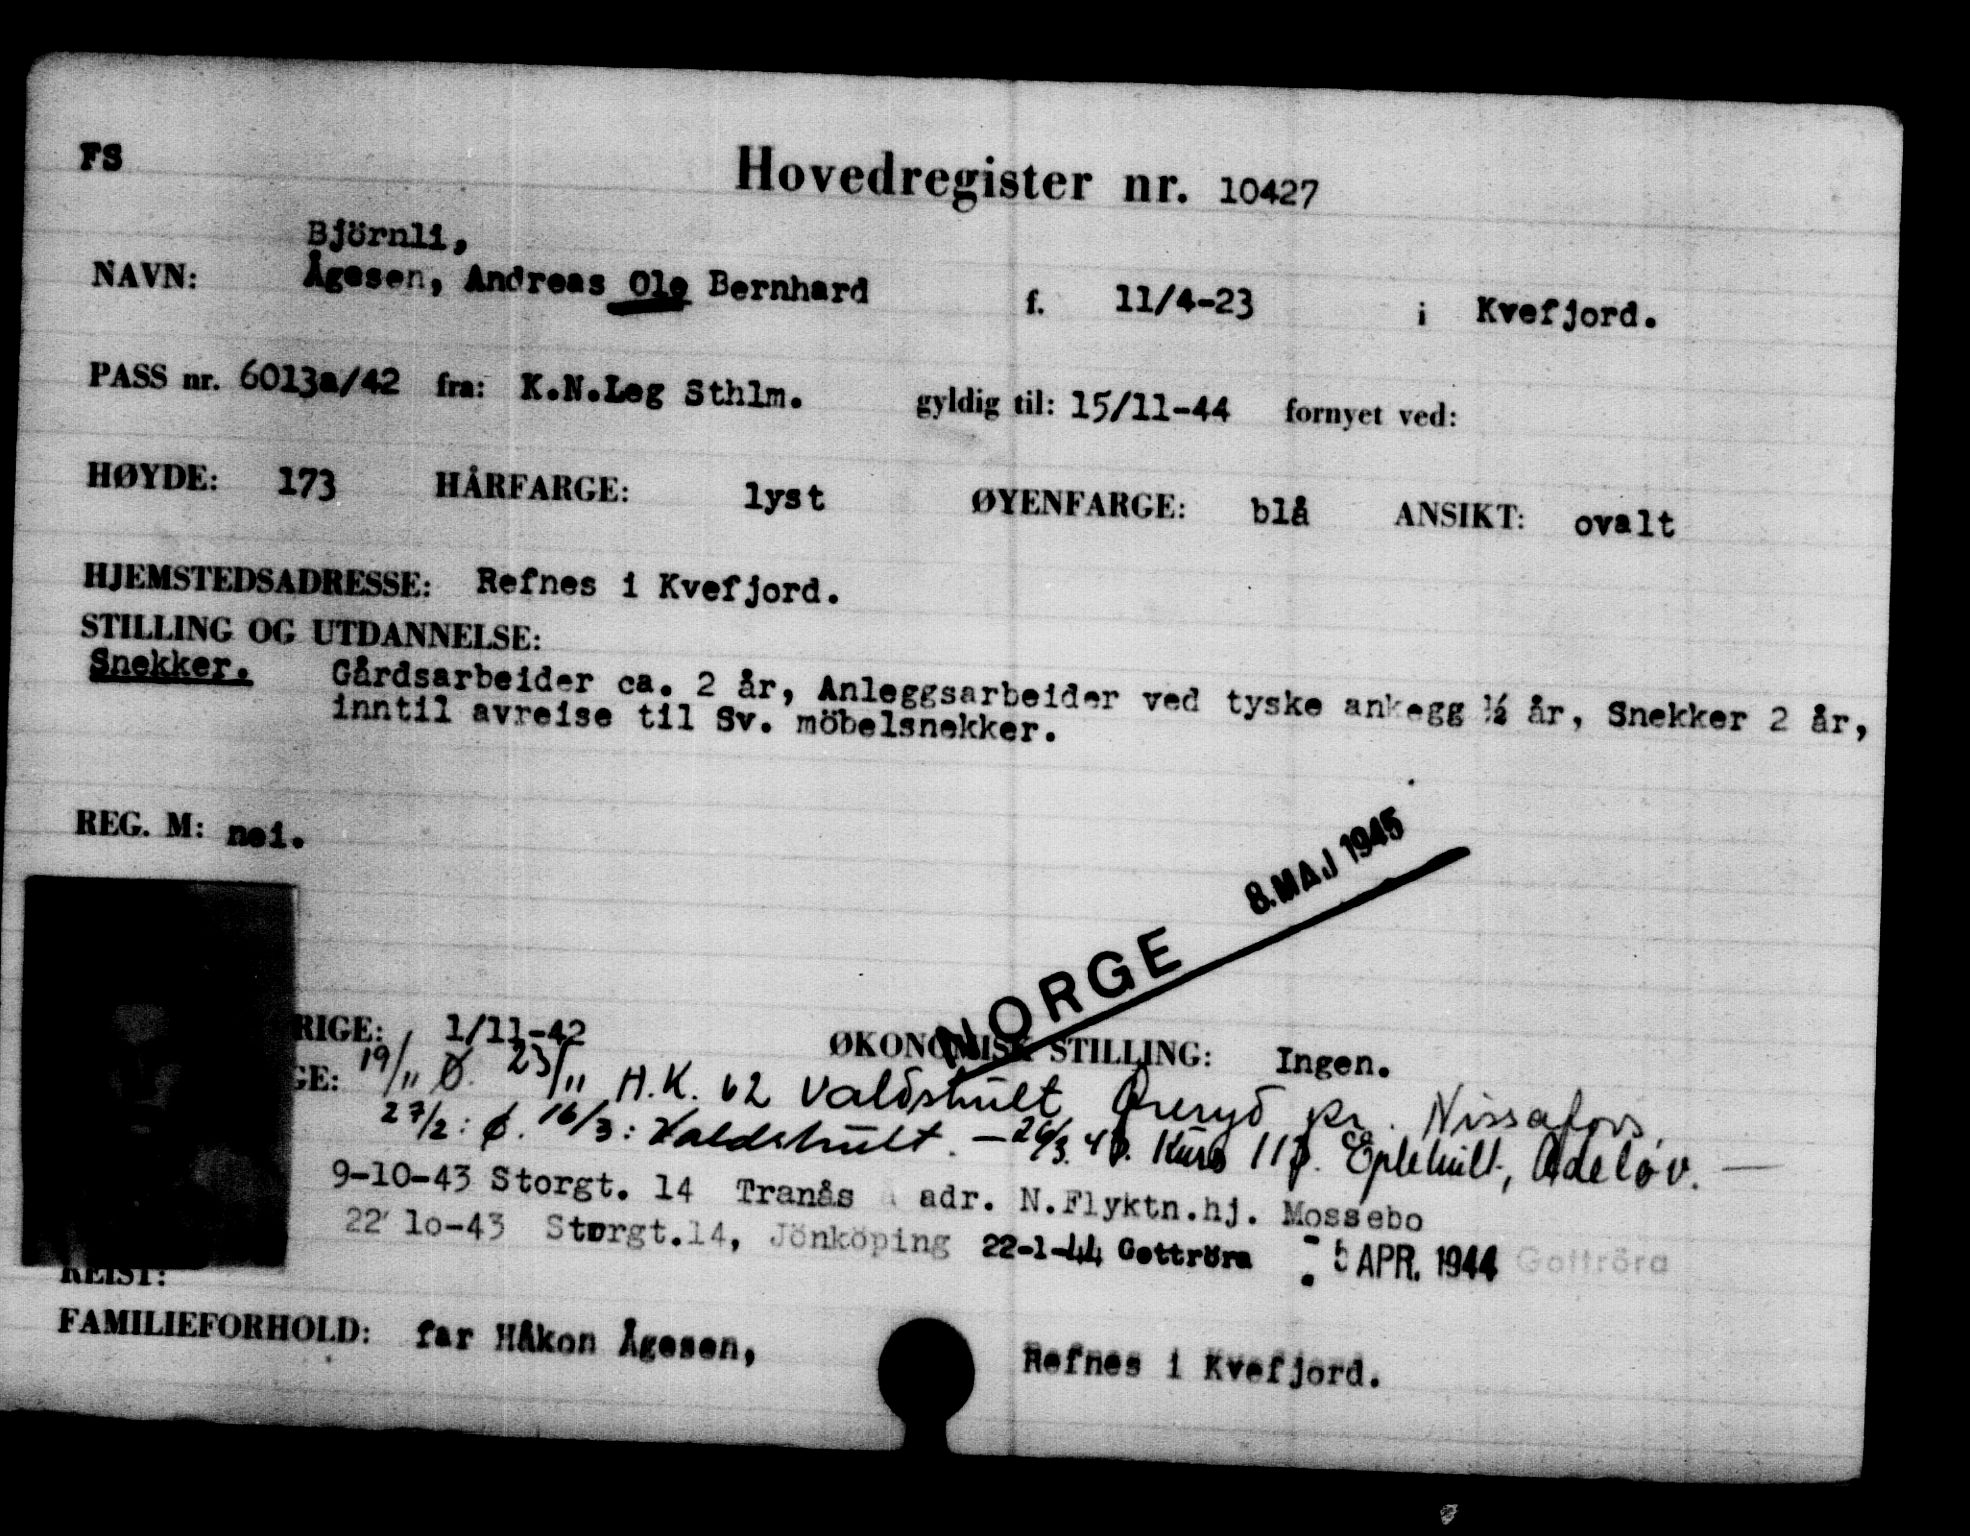 FS
Hovedregister nr. 10427
Björnli,
NAVN: Ågesen, Andreas Ole Bernhard f. 11/4-23 i Kvefjord.
PASS nr. 6013a/42 fra: K.N.Leg Sthlm. gyldig til: 15/11-44 fornyet ved:
HØYDE: 173 HÅRFARGE: lyst ØYENFARGE: blå ANSIKT: ovalt
HJEMSTEDSADRESSE: Refnes i Kvefjord.
STILLING OG UTDANNELSE:
Snekker. Gårdsarbeider ca. 2 år, Anleggsarbeider ved tyske ankegg ½ år, Snekker 2 år,
inntil avreise til Sv. möbelsnekker.
REG. M: nei.
8. MAJ 1945
NORGE
RIGE: 1/11-42 ØKONOMISK STILLING: Ingen.
GE: 19/11 Ø. 23/11 H.K. 62 Valdshult, Øreryd pr. Nissafors.
27/2: Ø. 16/3: Valdshult. — 26/3. 43. Kurs 11 Eplehult, Adeløv. —
9-10-43 Storgt. 14 Tranås adr. N.Flyktn.hj. Mossebo
22 10-43 Storgt.14, Jönköping 22-1-44 Gottröra 5 APR. 1944 Gottröra
REIST:
FAMILIEFORHOLD: far Håkon Ågesen, Refnes i Kvefjord.